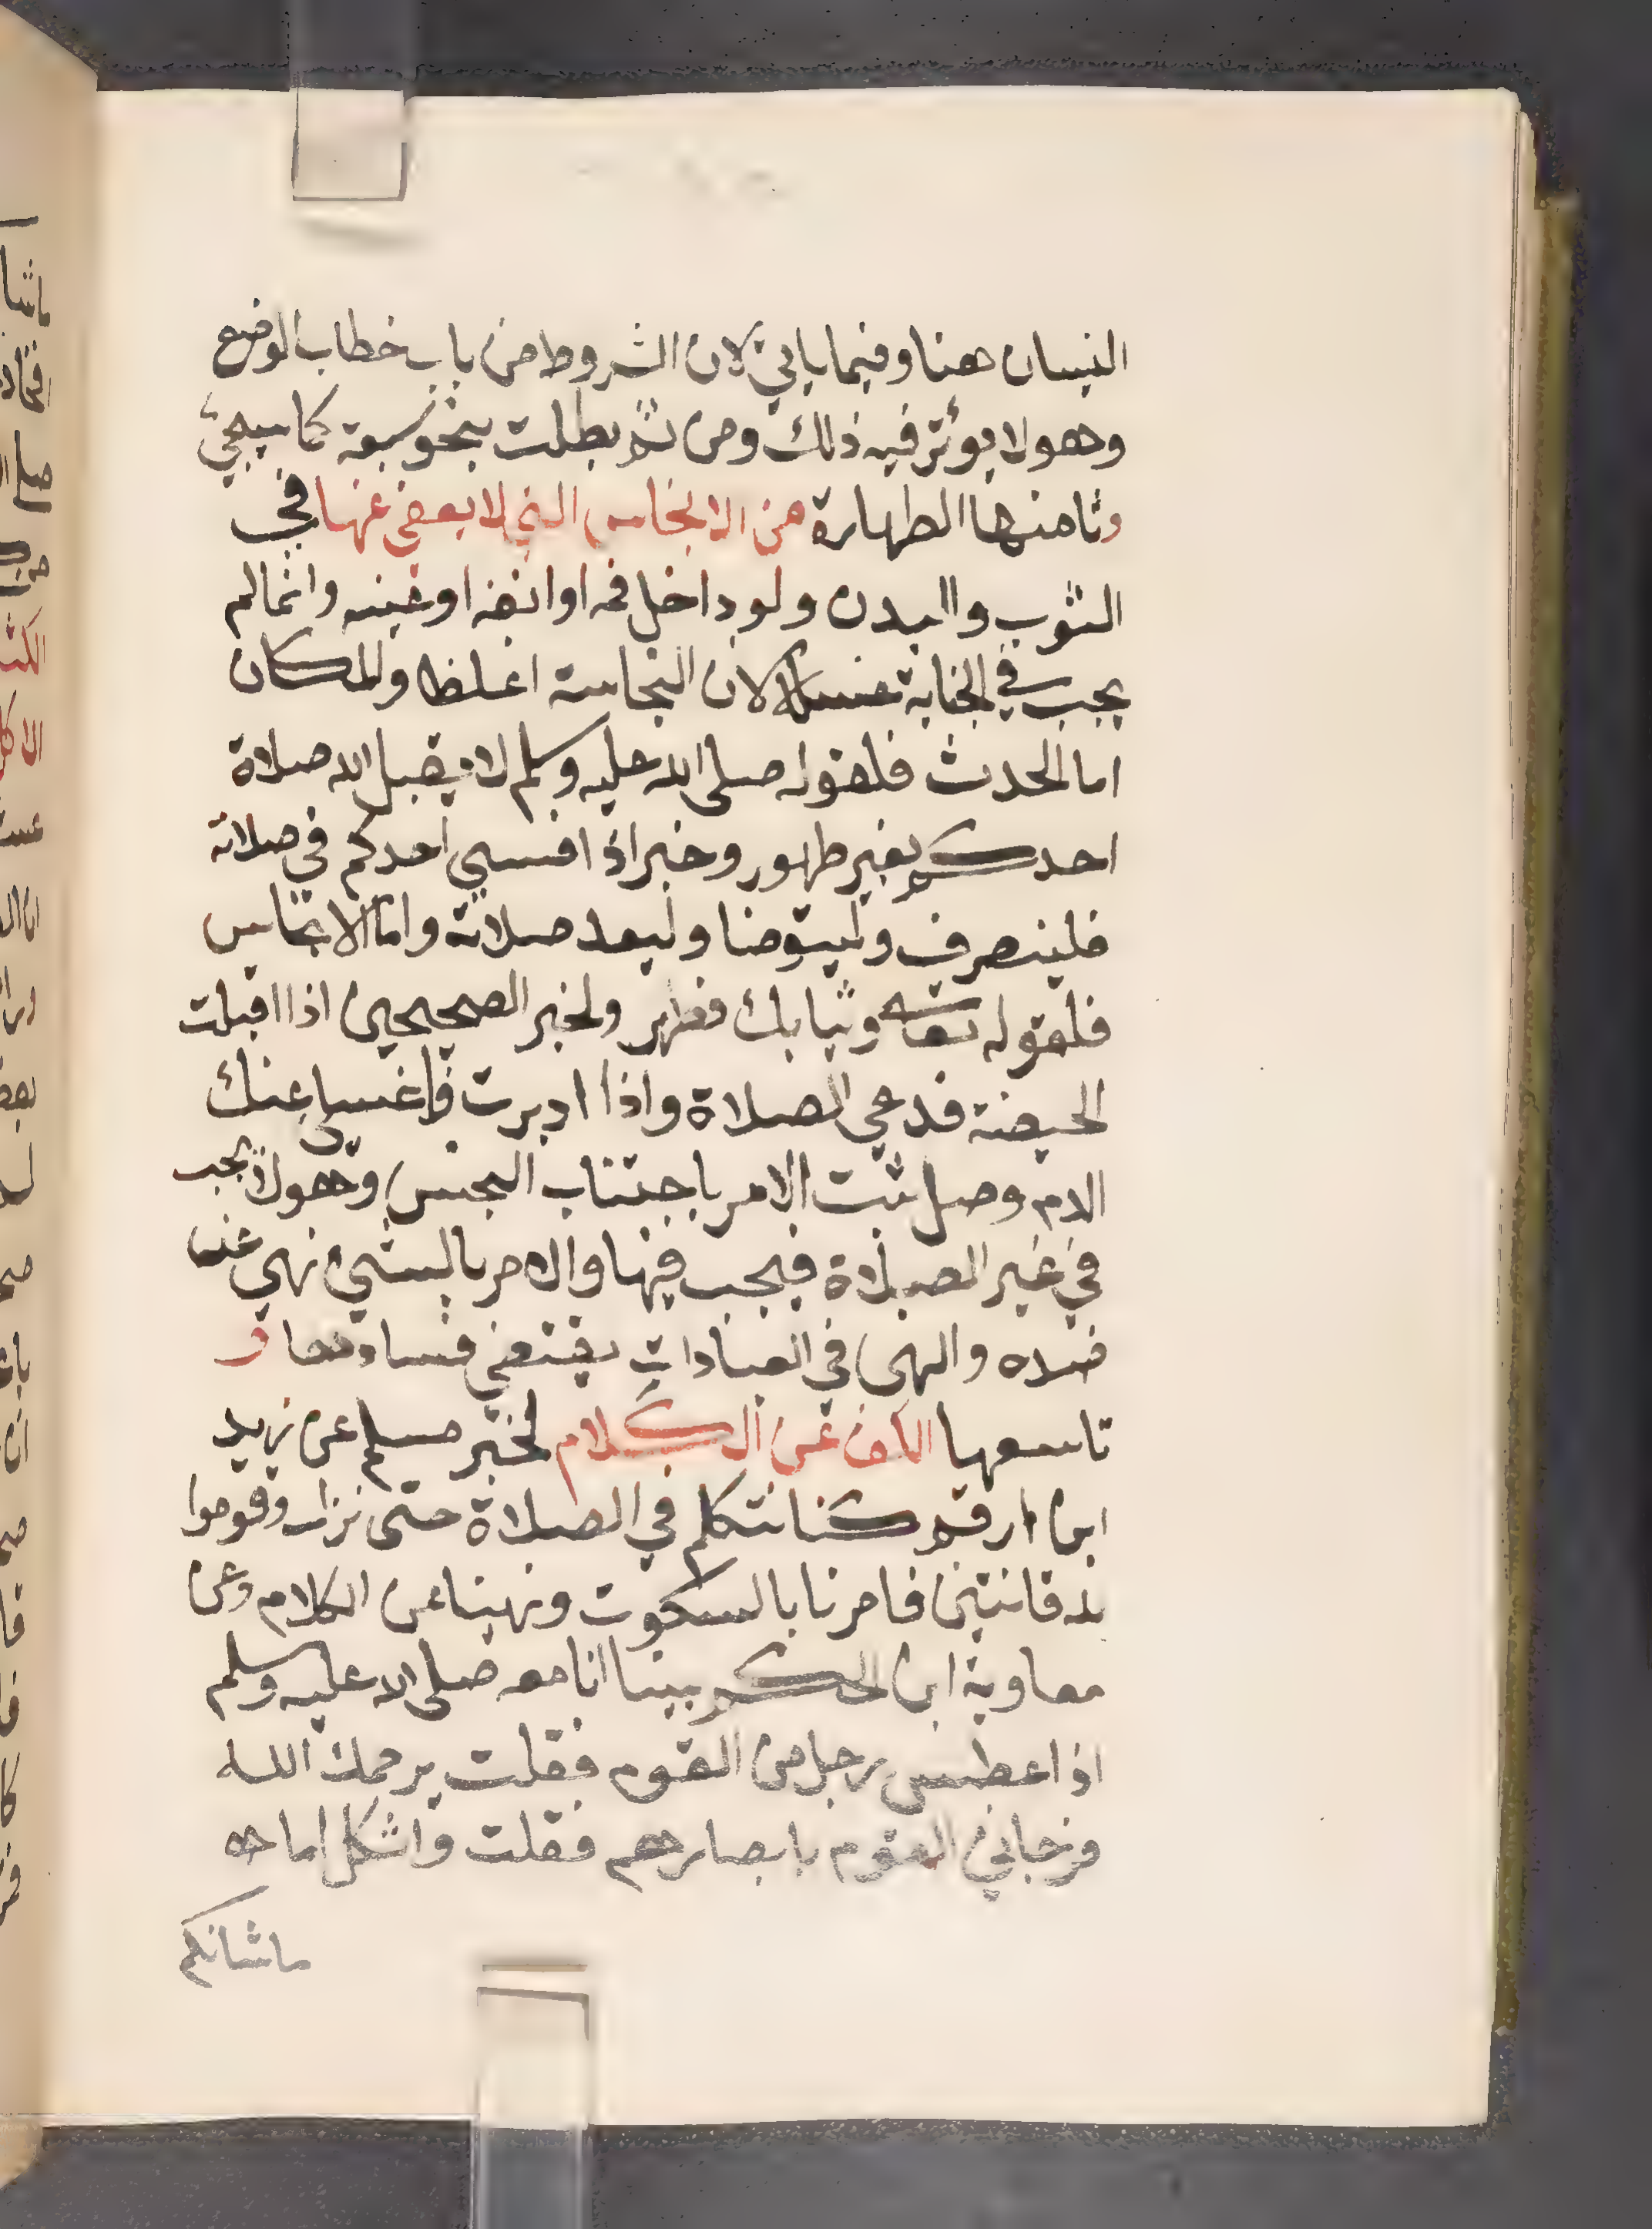 النسان هنا وفيما ياتي لان الشروط من باب خطاب الوضع
وهو لا يوثر فيه ذلك ومن ثم بطلت بنحو سبعة كما سيجي
وثامنها الطهارة من الانجاس التي لا يعفى عنها في
الثوب والبدن ولو داخل فمه او انفه او عينه وانما لم
يجب في الجنابة غسله لان النجاسة اغلظ والمكان
اما الحدث فلقوله صلى الله عليه وسلم لا يقبل الله صلاة
احدكم بغير طهور وخبر اذا فسي احدكم في صلاته
فلينصرف وليتوضا وليعد صلاته واما الانجاس
فلقوله تعالى وثيابك فطهر ولخبر الصحيحين اذا اقبلت
الحيضة فدعي الصلاة واذا ادبرت فاغسلي عنك
الدم وصل ثبت الامر باجتناب النجس وهو لا يجب
في غير الصلاة فيجب فيها والامر بالشيء نهي عن
ضده والنهى في العبادات يقتضي فسادها و
تاسعها الكف عن الكلام لخبر مسلم عن زيد
ابن ارقم كنا نتكلم في الصلاة حتى نزلت وقوموا
لله قانتين فامرنا بالسكوت ونهينا عن الكلام وعن
معاوية ابن الحكم بينا انا معه صلى الله عليه وسلم
اذا عطس رجل من القوم فقلت يرحمك الله
فرجاني القوم بابصارهم فقلت واثكل اماه
ما شانكم